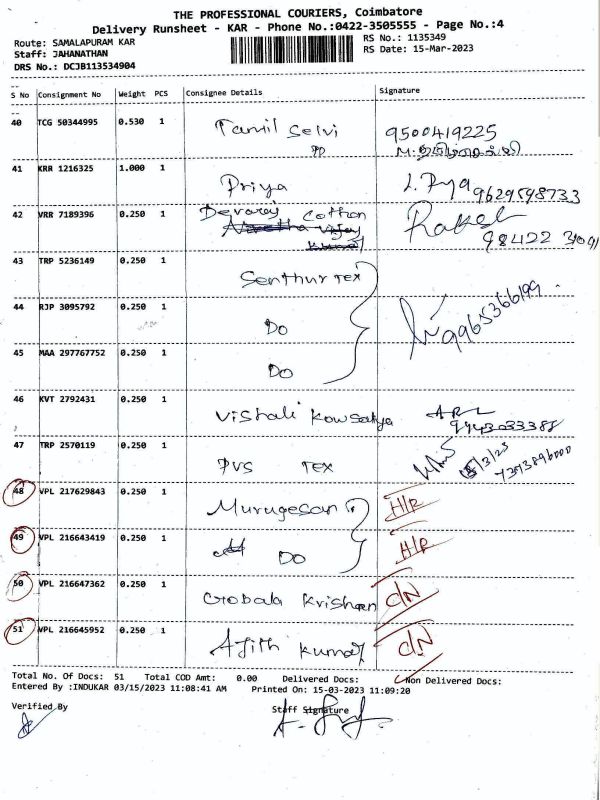 THE PROFESSIONAL COURIERS, Coimbatore
Delivery Runsheet - KAR - Phone No.:0422-3505555 - Page No.:4
Route: SAMALAPURAM KAR
RS No.: 1135349
Staff: JAHANATHAN
RS Date: 15-Mar-2023
DRS No.: DCJB113534904
S No Consignment No Weight PCS Consignee Details Signature
40 TCG 50344995 0.530 1 Tamil Selvi 9500419225
41 KRR 1216325 1.000 1 Priya 9629598733
42 VRR 7189396 0.250 1 Devaraj Cotton Rakesh
Nivetha Vijay
Kumar
43 TRP 5236149 0.250 1 Senthur Tex
44 RJP 3095792 0.250 1 Do 9965366199
45 MAA 297767752 0.250 1 Do
46 KVT 2792431 0.250 1 Vishali Kowsalya
47 TRP 2570119 0.250 1 PVS TEX 15/3/23 7373896000
48 VPL 217629843 0.250 1 Murugesan H/R
49 VPL 216643419 0.250 1 Do H/R
50 VPL 216647362 0.250 1 Gobala Krishnan DN
51 VPL 216645952 0.250 1 Ajith Kumar DN
Total No. Of Docs: 51 Total COD Amt: 0.00 Delivered Docs: Non Delivered Docs:
Entered By :INDUKAR 03/15/2023 11:08:41 AM Printed On: 15-03-2023 11:09:20
Verified By Staff Signature